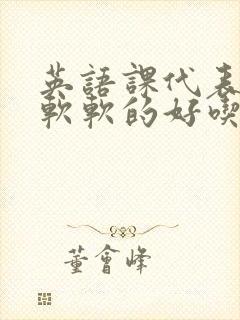 英語課代表
軟軟的好喫
董會峰